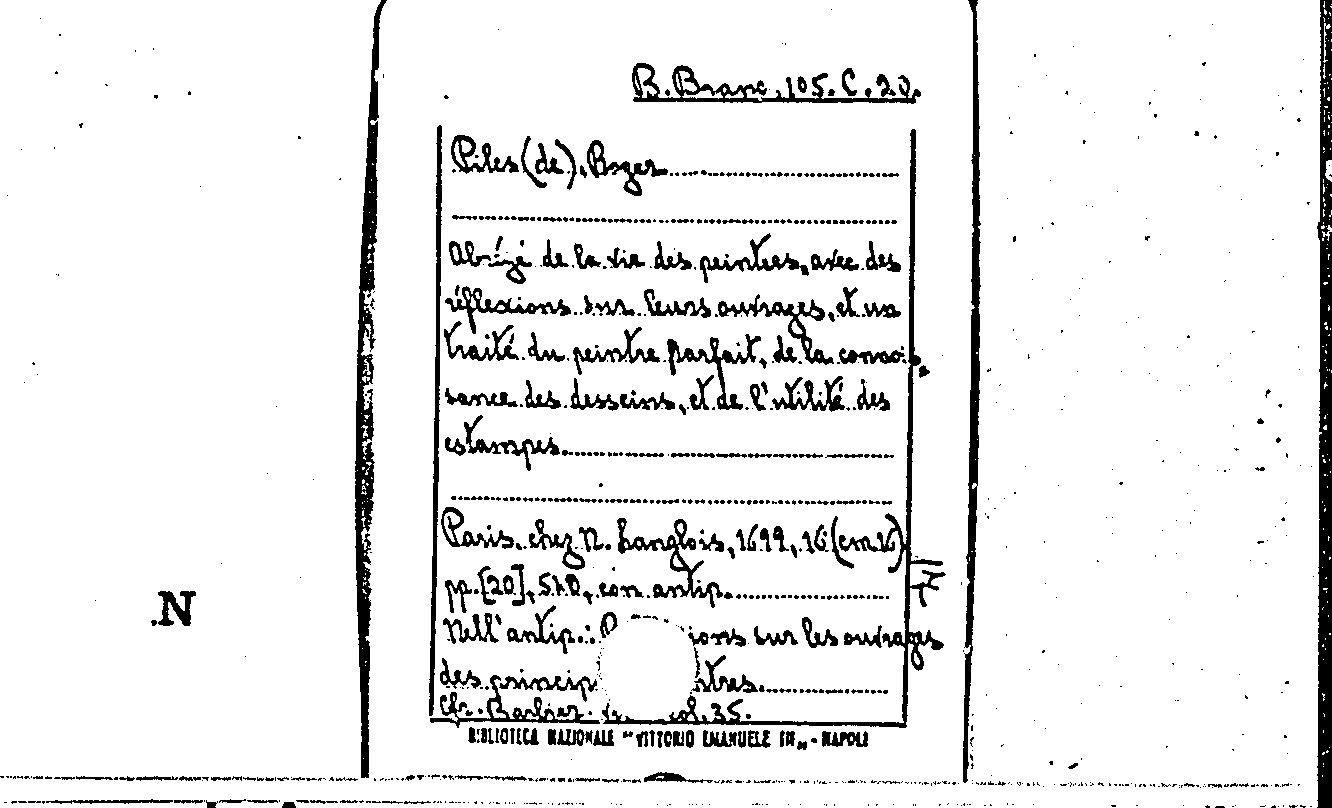 B. Branc. 105. C. 20.
Piles (de), Roger
Abrégé de la vie des peintres, avec des
réflexions sur leurs ouvrages, et un
traité du peintre parfait, de la connois
sance des desseins, et de l'utilité des
estampes.
Paris, chez N. Langlois, 1699, 16 (cm. 16)
pp. [20], 540, con antip.
Nell'antip.: ions sur les ouvrages
des princip ntres.
Cfr. Barbier. col. 35.
BIBLIOTECA NAZIONALE "VITTORIO EMANUELE III" - NAPOLI
.N